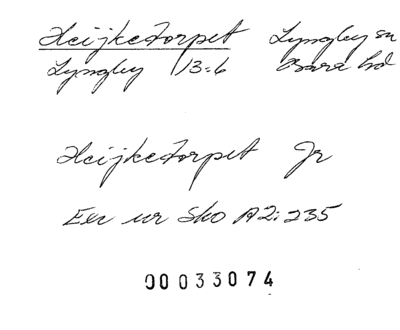 Heijketorpet Lyngby sn
Lyngby 13:6 Bara hd
Heijketorpet Jr
Ex ur Sko A2:235
00033074